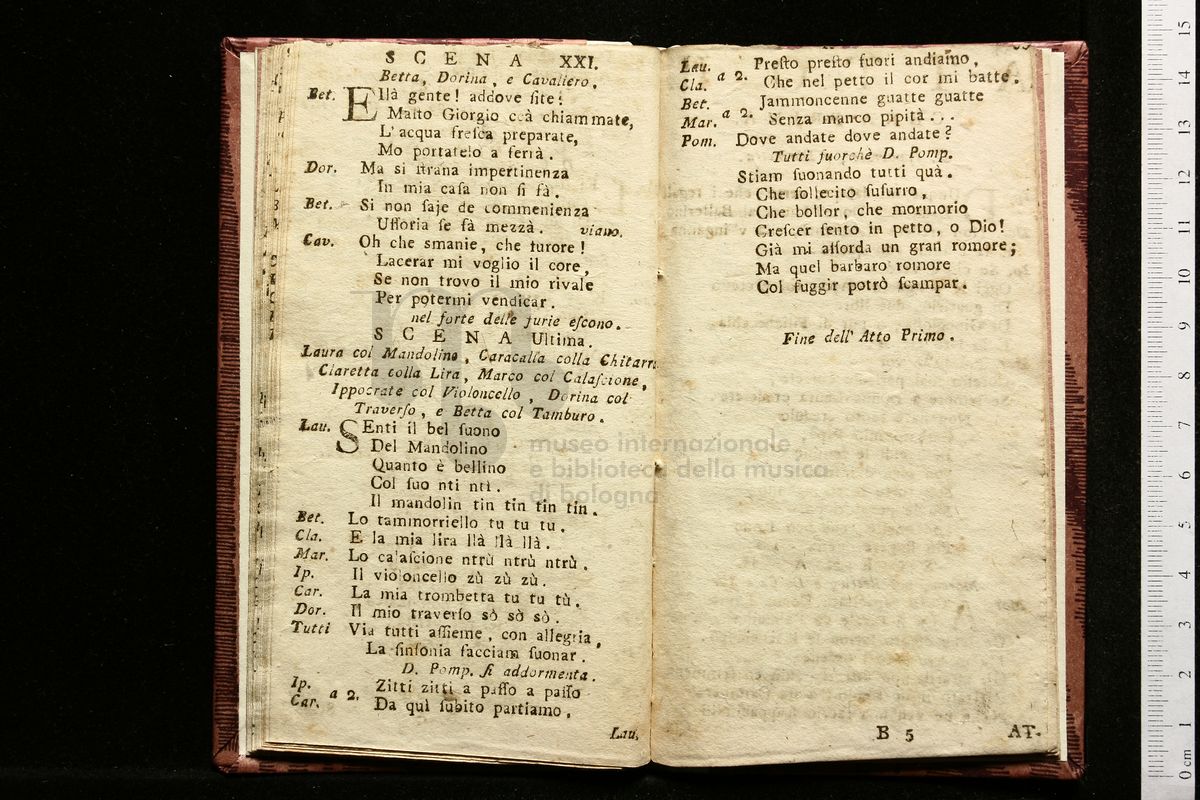 SCENA XXI.
Betta, Dorina, e Cavaliero.
Bet. Ellà gente! addove ſite!
Maſto Giorgio ccà chiammate,
L'acqua freſca preparate,
Mo portatelo a ferrà.
Dor. Ma si ſtrana impertinenza
In mia caſa non ſi fà.
Bet. Si non ſaje de commenienza
Uſſoria ſe fà mezzà. viano.
Cav. Oh che smanie, che furore!
Lacerar mi voglio il core,
Se non trovo il mio rivale
Per potermi vendicar.
nel forte delle furie eſcono.
SCENA Ultima.
Laura col Mandolino, Caracalla colla Chitarra
Claretta colla Lira, Marco col Calaſcione,
Ippocrate col Violoncello, Dorina col
Traverſo, e Betta col Tamburo.
Lau. SEnti il bel ſuono
Del Mandolino
Quanto è bellino
Col ſuo nti nti.
Il mandolin tin tin tin tin.
Bet. Lo tammorriello tu tu tu.
Cla. E la mia lira llà llà llà.
Mar. Lo calaſcione ntrù ntrù ntrù.
Ip. Il violoncello zù zù zù.
Car. La mia trombetta tu tu tù.
Dor. Il mio traverſo sò sò sò.
Tutti Via tutti aſſieme, con allegria,
La ſinſonia facciam ſuonar.
D. Pomp. ſi addormenta.
Ip. Car. a 2. Zitti zitti a paſſo a paſſo
Da quì ſubito partiamo,
Lau.
Lau. Cla. a 2. Preſto preſto fuori andiamo,
Che nel petto il cor mi batte.
Bet. Mar. a 2. Jammoncenne guatte guatte
Senza manco pipità...
Pom. Dove andate dove andate?
Tutti fuorchè D. Pomp.
Stiam ſuonando tutti quà.
Che ſollecito ſuſurro,
Che bollor, che mormorio
Creſcer ſento in petto, o Dio!
Già mi aſſorda un gran romore;
Ma quel barbaro romore
Col fuggir potrò ſcampar.
Fine dell' Atto Primo.
B 5 AT-
museo internazionale
e biblioteca della musica
di bologna
0 cm 1 2 3 4 5 6 7 8 9 10 11 12 13 14 15